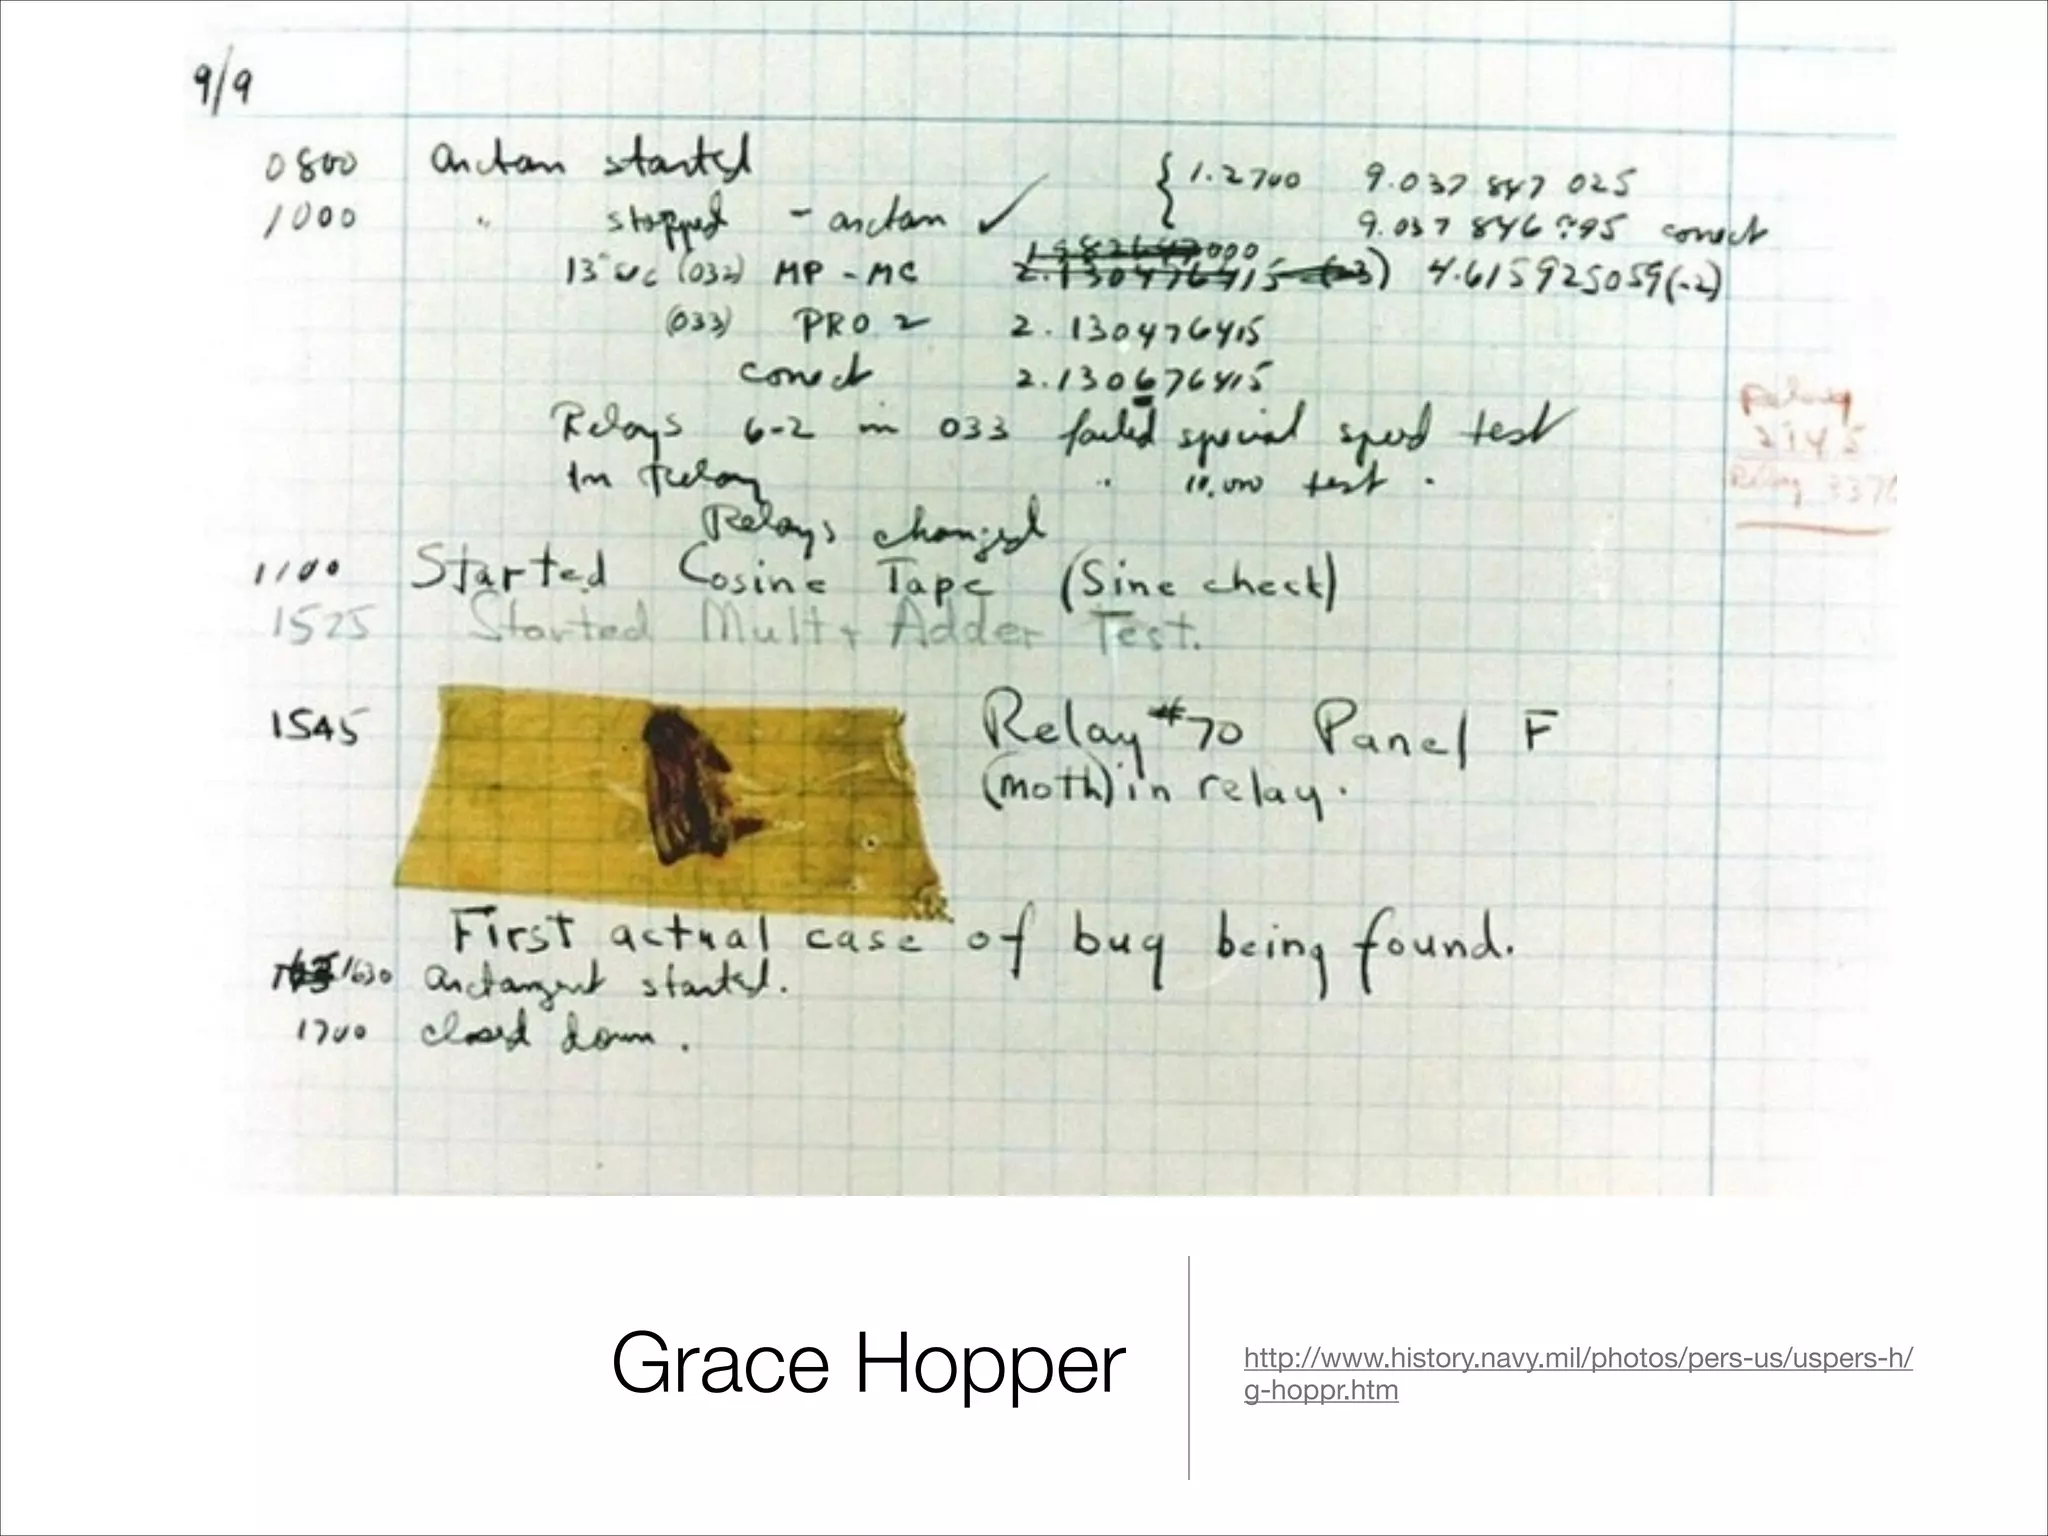 9/9
0800 arctan started { 1.2700 9.037 847 025
1000 " stopped - arctan ✓ 9.037 846 995 correct
(032) MP - MC 2.130476415 (-3) 4.615925059(-2)
(033) PRO 2 2.130476415
correct 2.130676415
Relays 6-2 in 033 failed special speed test
In Relay " 10,000 test .
Relays changed
Relay
2145
Relay 3370
1100 Started Cosine Tape (Sine check)
1525 Started Mult + Adder Test.
1545 Relay #70 Panel F
(moth) in relay.
First actual case of bug being found.
1630 arctangent started.
1700 closed down.
Grace Hopper
http://www.history.navy.mil/photos/pers-us/uspers-h/
g-hoppr.htm